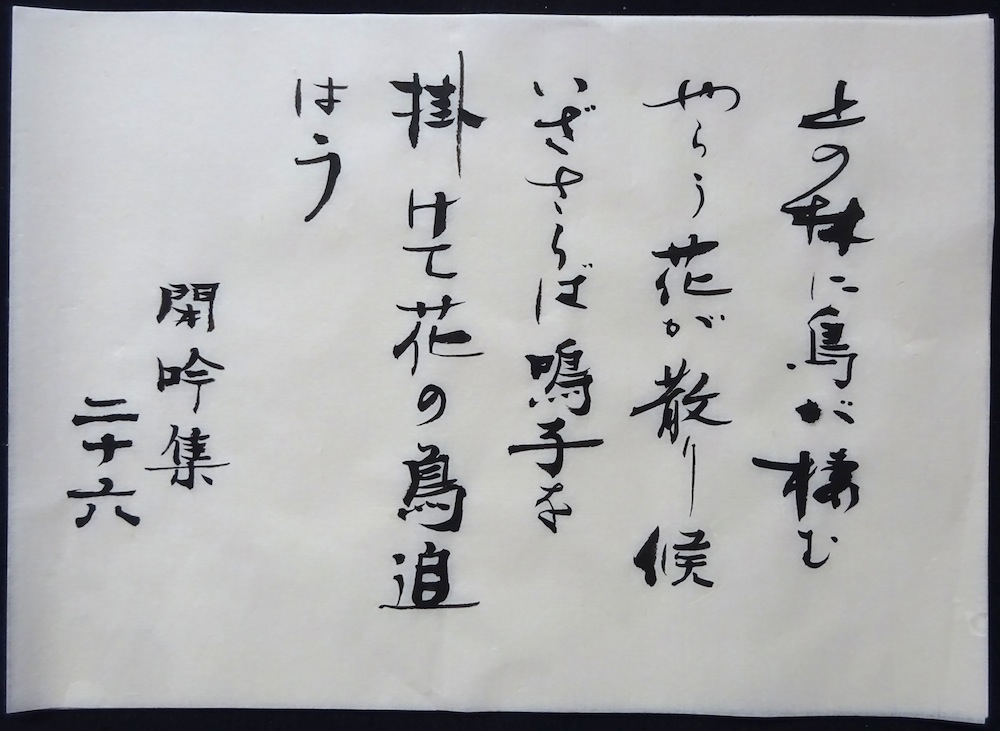 上の林に鳥が棲む
やらう花が散り候
いざさらば鳴子を
掛けて花の鳥追
はう
閑吟集
二十六